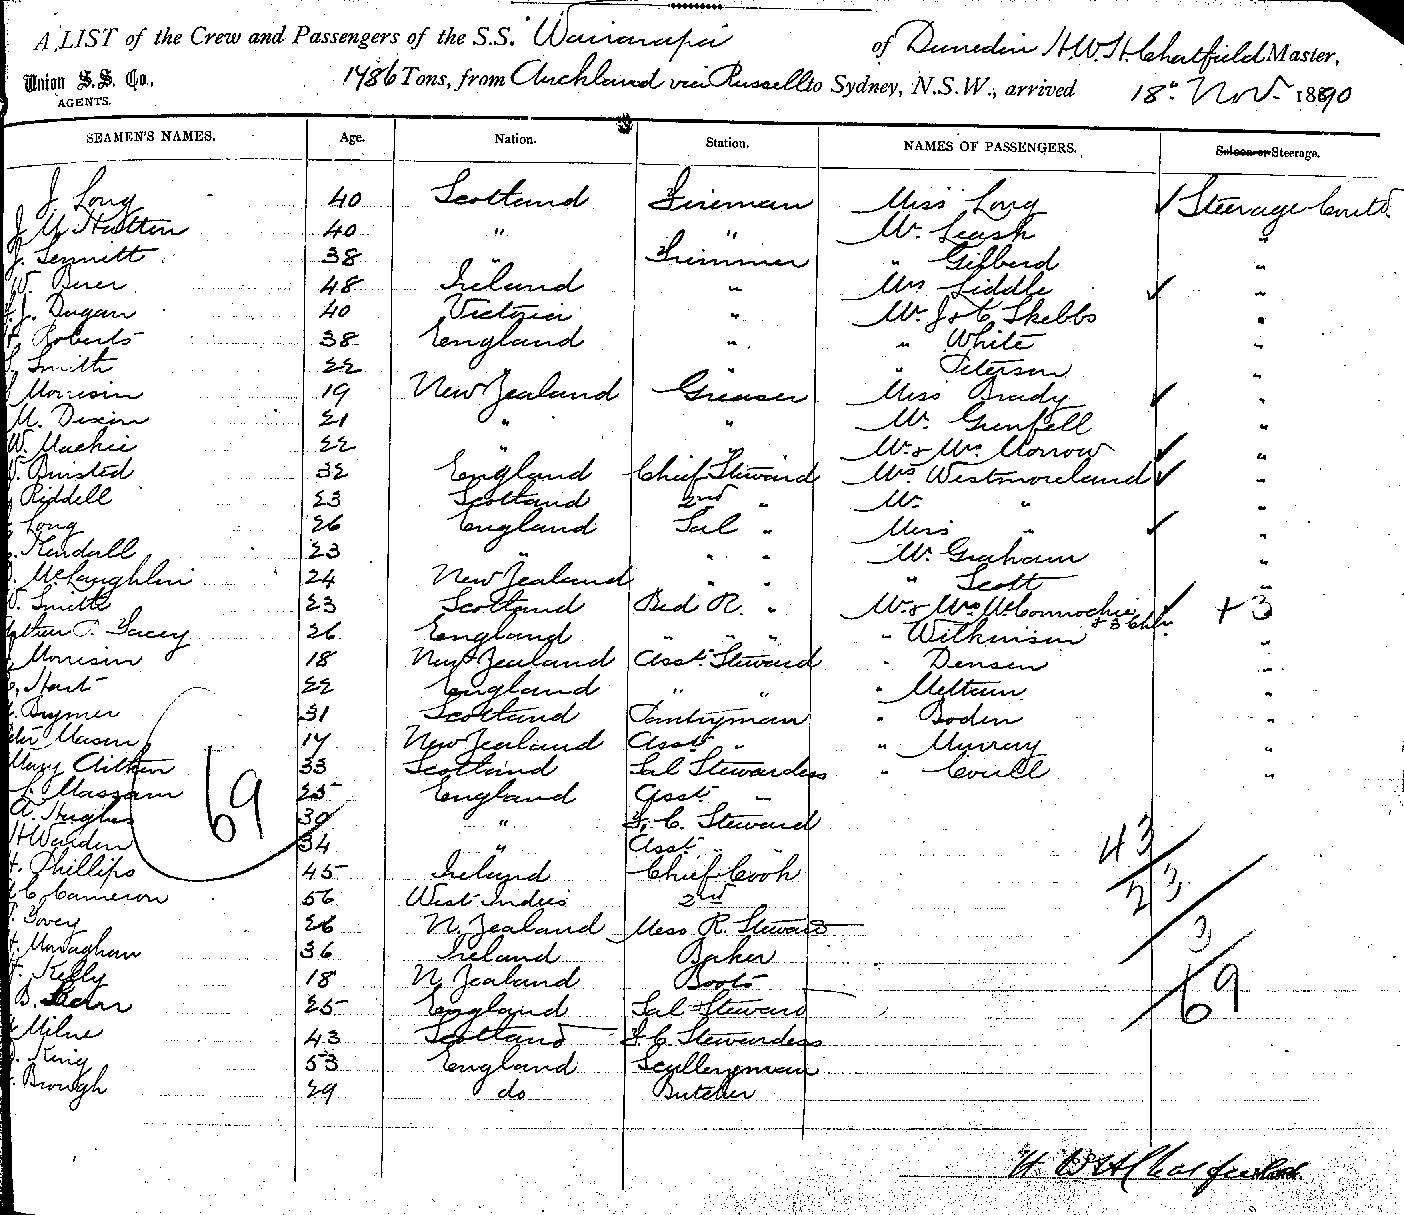 A LIST of the Crew and Passengers of the S.S. Wairarapa of Dunedin H.W.H. Chatfield Master,
Union S.S. Co., 1786 Tons, from Auckland via Russell to Sydney, N.S.W., arrived 18th Nov. 1890
AGENTS.
SEAMEN'S NAMES. Age. Nation. Station. NAMES OF PASSENGERS. Saloon or Steerage.
J. Long 40 Scotland Fireman Miss Long ✓ Steerage Contd.
Hutton 40 " " Mr. Leash "
J. Sennitt 38 " Trimmer " Gifberd "
48 Ireland " Mrs Liddle ✓ "
J. Dugan 40 Victoria " Mr. J & C Skebbs "
Roberts 38 England " " White "
Smith 22 " Peterson "
Morrison 19 New Zealand Greaser Miss Brady ✓ "
M. Dixon 21 " " Mr. Grenfell "
W. Mackie 22 " " Mr & Mrs Morrow ✓ "
Binsted 32 England Chief Steward Mrs Westmoreland ✓ "
Riddell 23 Scotland 2nd " Mr. " "
Long 26 England Sal " Miss " ✓ "
Kendall 23 " " " Mr. Graham "
McLaughlin 24 New Zealand " " " Scott "
Smith 23 Scotland Bed R. " Mr & Mrs McConnochie & 3 Chn. ✓ + 3
Arthur P. Gacey 26 England " " " " Wilkinson "
Morrison 18 New Zealand Asst. Steward " Densen "
Hart 22 England " " " Meltam "
Brymer 31 Scotland Pantryman " Boden "
Peter Mason 17 New Zealand Asst " " Murray "
Mary Aitken 33 Scotland Sal Stewardess " Coull "
Massam 25 England Asst "
A. Hughes 30 " F. C. Steward
H Warden 34 " Asst " "
Phillips 45 Ireland Chief Cook
C. Cameron 56 West Indies 2nd "
Tovey 26 N. Zealand Mess R. Steward
Monaghan 36 Ireland Baker
Kelly 18 N Zealand Boots
B. 25 England Sal Steward
Milne 43 Scotland F. C. Stewardess
King 53 England Sculleryman
Brough 29 do Butcher
69
43
23
3
69
H. W. H. Chatfield